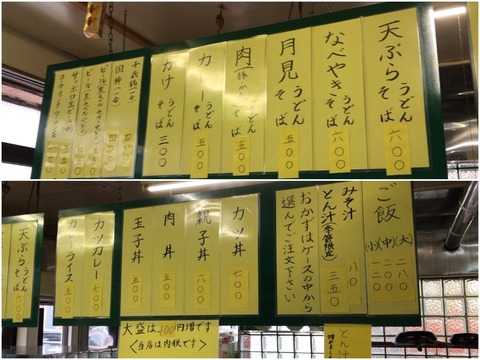 天ぷら うどん そば 六〇〇
なべやき うどん そば 六〇〇
月見 うどん そば 五〇〇
肉 うどん そば 五〇〇
カレー うどん そば 五〇〇
かけ うどん そば 三〇〇
ご飯 (大) 二八〇
(中) 二〇〇
(小) 一二〇
みそ汁 八〇
とん汁(冬季限定) 三五〇
おかずはケースの中から
選んでご注文下さい
カツ丼 七〇〇
親子丼 六〇〇
肉丼 五〇〇
玉子丼 五〇〇
カツカレー 七〇〇
カレーライス 五〇〇
天ぷら うどん そば 六〇〇
大盛は、100円増です
〈当店は内税です〉
とん汁